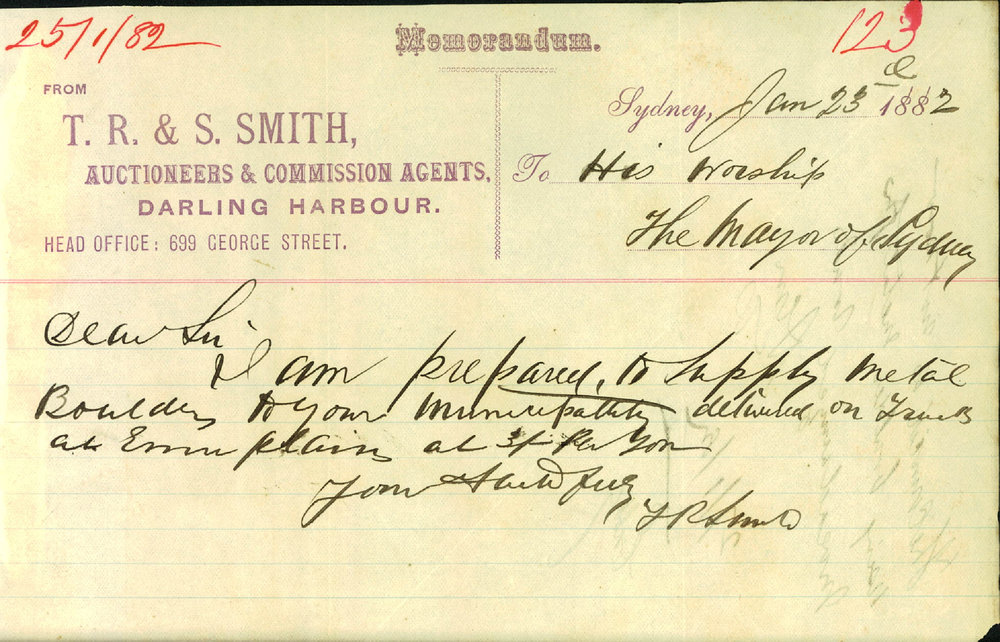 25/1/82
123
Memorandum.
FROM
T. R. & S. SMITH,
AUCTIONEERS & COMMISSION AGENTS,
DARLING HARBOUR.
HEAD OFFICE: 699 GEORGE STREET.
Sydney, Jan 23d 1882
To His Worship
The Mayor of Sydney
Dear Sir
I am prepared, to Supply Metal
Boulders to your Municipality delivered on Trucks
at Emu plains at 3/- Per Ton
Your Faithfully
T R Smith